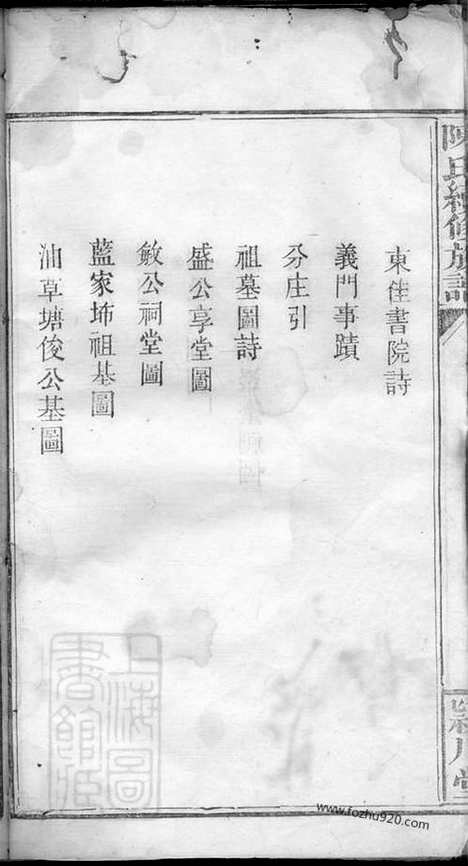 陳氏續修族譜
東佳書院詩
義門事蹟
分庄引
祖墓圖詩
盛公享堂圖
敏公祠堂圖
藍家垇祖基圖
油草塘俊公基圖
潁川堂
上海圖書館藏
www.fozhu920.com